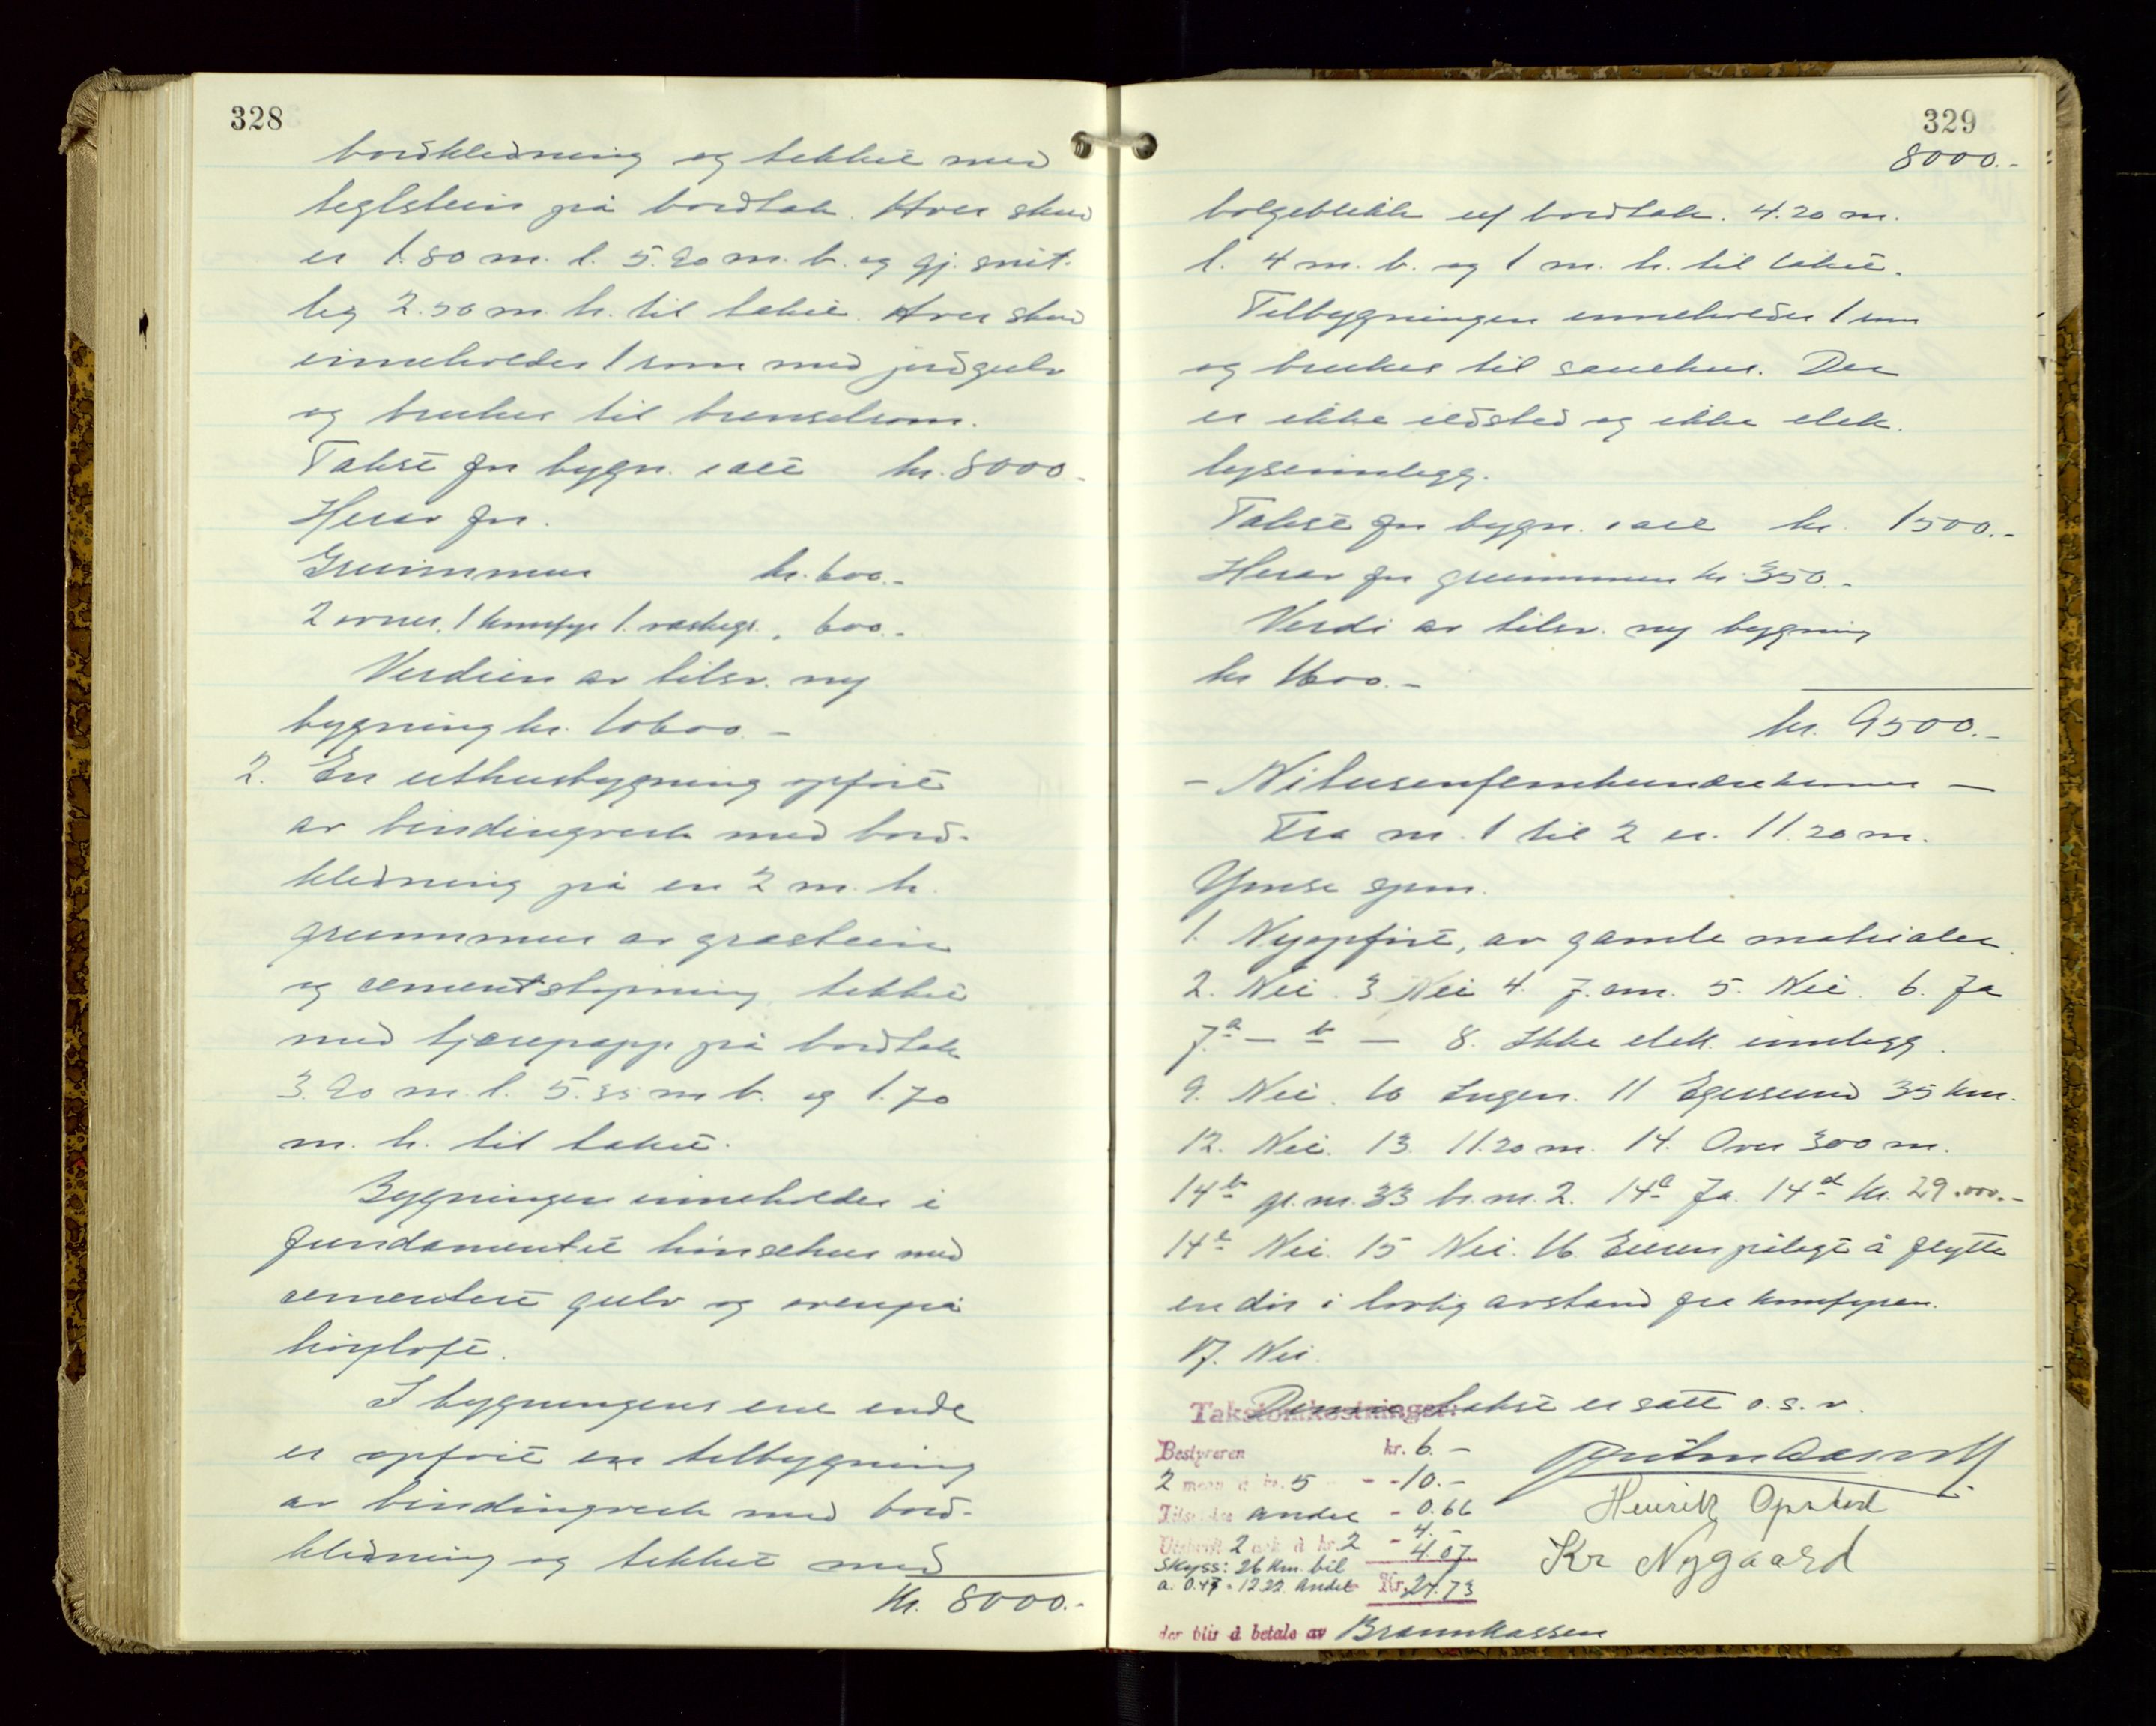 328
bordkledning og tekket med
teglstein på bordtak. Hver skud
er 1.80 m. l. 5.20 m. b. og gj. snit-
lig 2.50 m. h. til taket. Hver skud
inneholder 1 rom med jordgulv
og brukes til brenselrom.
Takst for bygn. i alt kr. 8000.-
Herav for.
Grunnmur kr. 600.-
2 ovner, 1 komfyr 1. vaskegr. " 600.-
Verdien av tilsv. ny
bygning kr. 10600.-
2. En uthusbygning opført
av bindingverk med bord-
kledning på en 2 m. h.
grunnmur av gråstein
og cementstøpning, tekket
med tjærepapp på bordtak
3.20 m. l. 5.35 m b. og 1.70
m. h. til taket.
Bygningen inneholder i
fundamentet hønsehus med
cementert gulv og ovenpå
høyloft.
I bygningens ene ende
er opført en tilbygning
av bindingverk med bord-
kledning og tekket med
Kr. 8000.-
329
8000.-
bølgeblikk uf bordtak. 4.20 m.
l. 4 m. b. og 1 m. h. til taket.
Tilbygningen inneholder 1 rom
og brukes til sauehus. Der
er ikke ildsted og ikke elek.
lysinnlegg.
Takst for bygn. i alt kr. 1500.-
Herav for grunnmur kr. 350.-
Verdi av tilsv. ny bygning
kr 1600.-
kr. 9500.-
- Nitusenfemhundrekroner -
Fra nr. 1 til 2 er. 11.20 m.
Ymse spm.
1. Nyopført, av gamle materialer.
2. Nei. 3 Nei 4. J. am. 5. Nei. 6. Ja
7.a - b - 8. Ikke elek. innlegg.
9. Nei. 10 Ingen. 11 Egersund 35 km.
12. Nei. 13. 11.20 m. 14. Over 300 m.
14b gr. nr. 33 br. nr. 2. 14c Ja. 14d kr. 29.000.-
14e Nei. 15 Nei. 16. Eieren pålagt å flytte
en dør i lovlig avstand fra komfyren.
17. Nei.
Takstomkostninger: Denne takst er satt o. s. v.
Bestyreren kr. 6.-
2 menn à kr. 5 - -10.-
andel - 0.66
Utskrift 2 ark à kr. 2 - 4.-
4.07
Skyss: 26 km. bil
a. 0.47 = 12.22. Andel Kr. 24.73
Henrik Opstad
Kr Nygaard
der blir å betale av Brannkassen